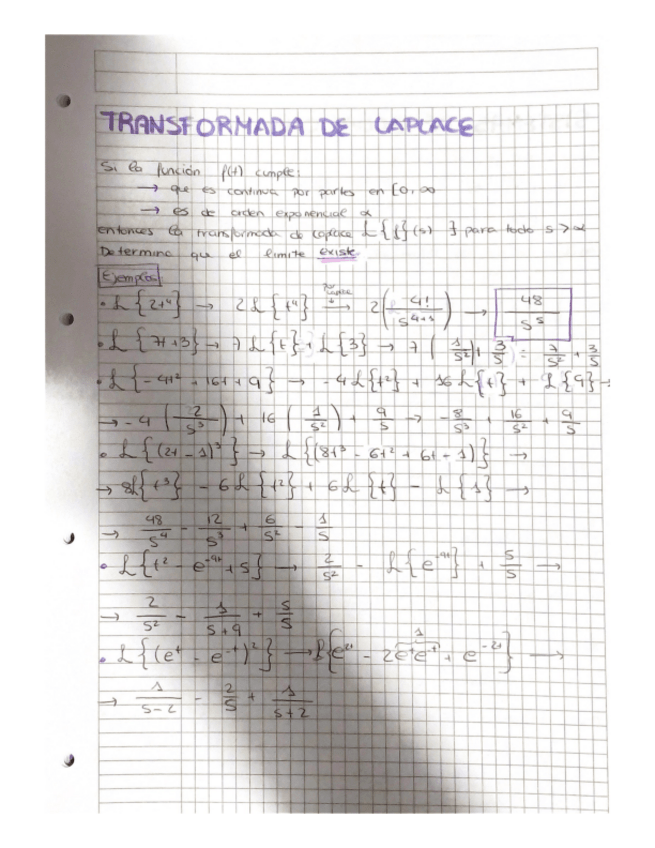 TRANSFORMADA DE LAPLACE
Si la función f(t) cumple:
→ que es continua por partes en [0, ∞
→ es de orden exponencial α
entonces la transformada de Laplace ℒ{f}(s) } para todo s > α
Determina que el límite existe
Ejemplos:
• ℒ{2t⁴} → 2ℒ{t⁴} → 2(4!/s⁴⁺¹) → 48/s⁵
• ℒ{7t+3} → 7ℒ{t} + ℒ{3} → 7(1/s²) + 3/s = 7/s² + 3/s
• ℒ{-4t² + 16t + 9} → -4ℒ{t²} + 16ℒ{t} + ℒ{9} →
→ -4(2/s³) + 16(1/s²) + 9/s → -8/s³ + 16/s² + 9/s
• ℒ{(2t - 1)³} → ℒ{(8t³ - 6t² + 6t - 1)} →
→ 8ℒ{t³} - 6ℒ{t²} + 6ℒ{t} - ℒ{1} →
→ 48/s⁴ - 12/s³ + 6/s² - 1/s
• ℒ{t² - e⁻⁹ᵗ + 5} → 2/s² - ℒ{e⁻⁹ᵗ} + 5/s →
→ 2/s² - 1/(s+9) + 5/s
• ℒ{(eᵗ - e⁻ᵗ)²} → ℒ{e²ᵗ - 2eᵗe⁻ᵗ + e⁻²ᵗ} →
→ 1/(s-2) - 2/s + 1/(s+2)